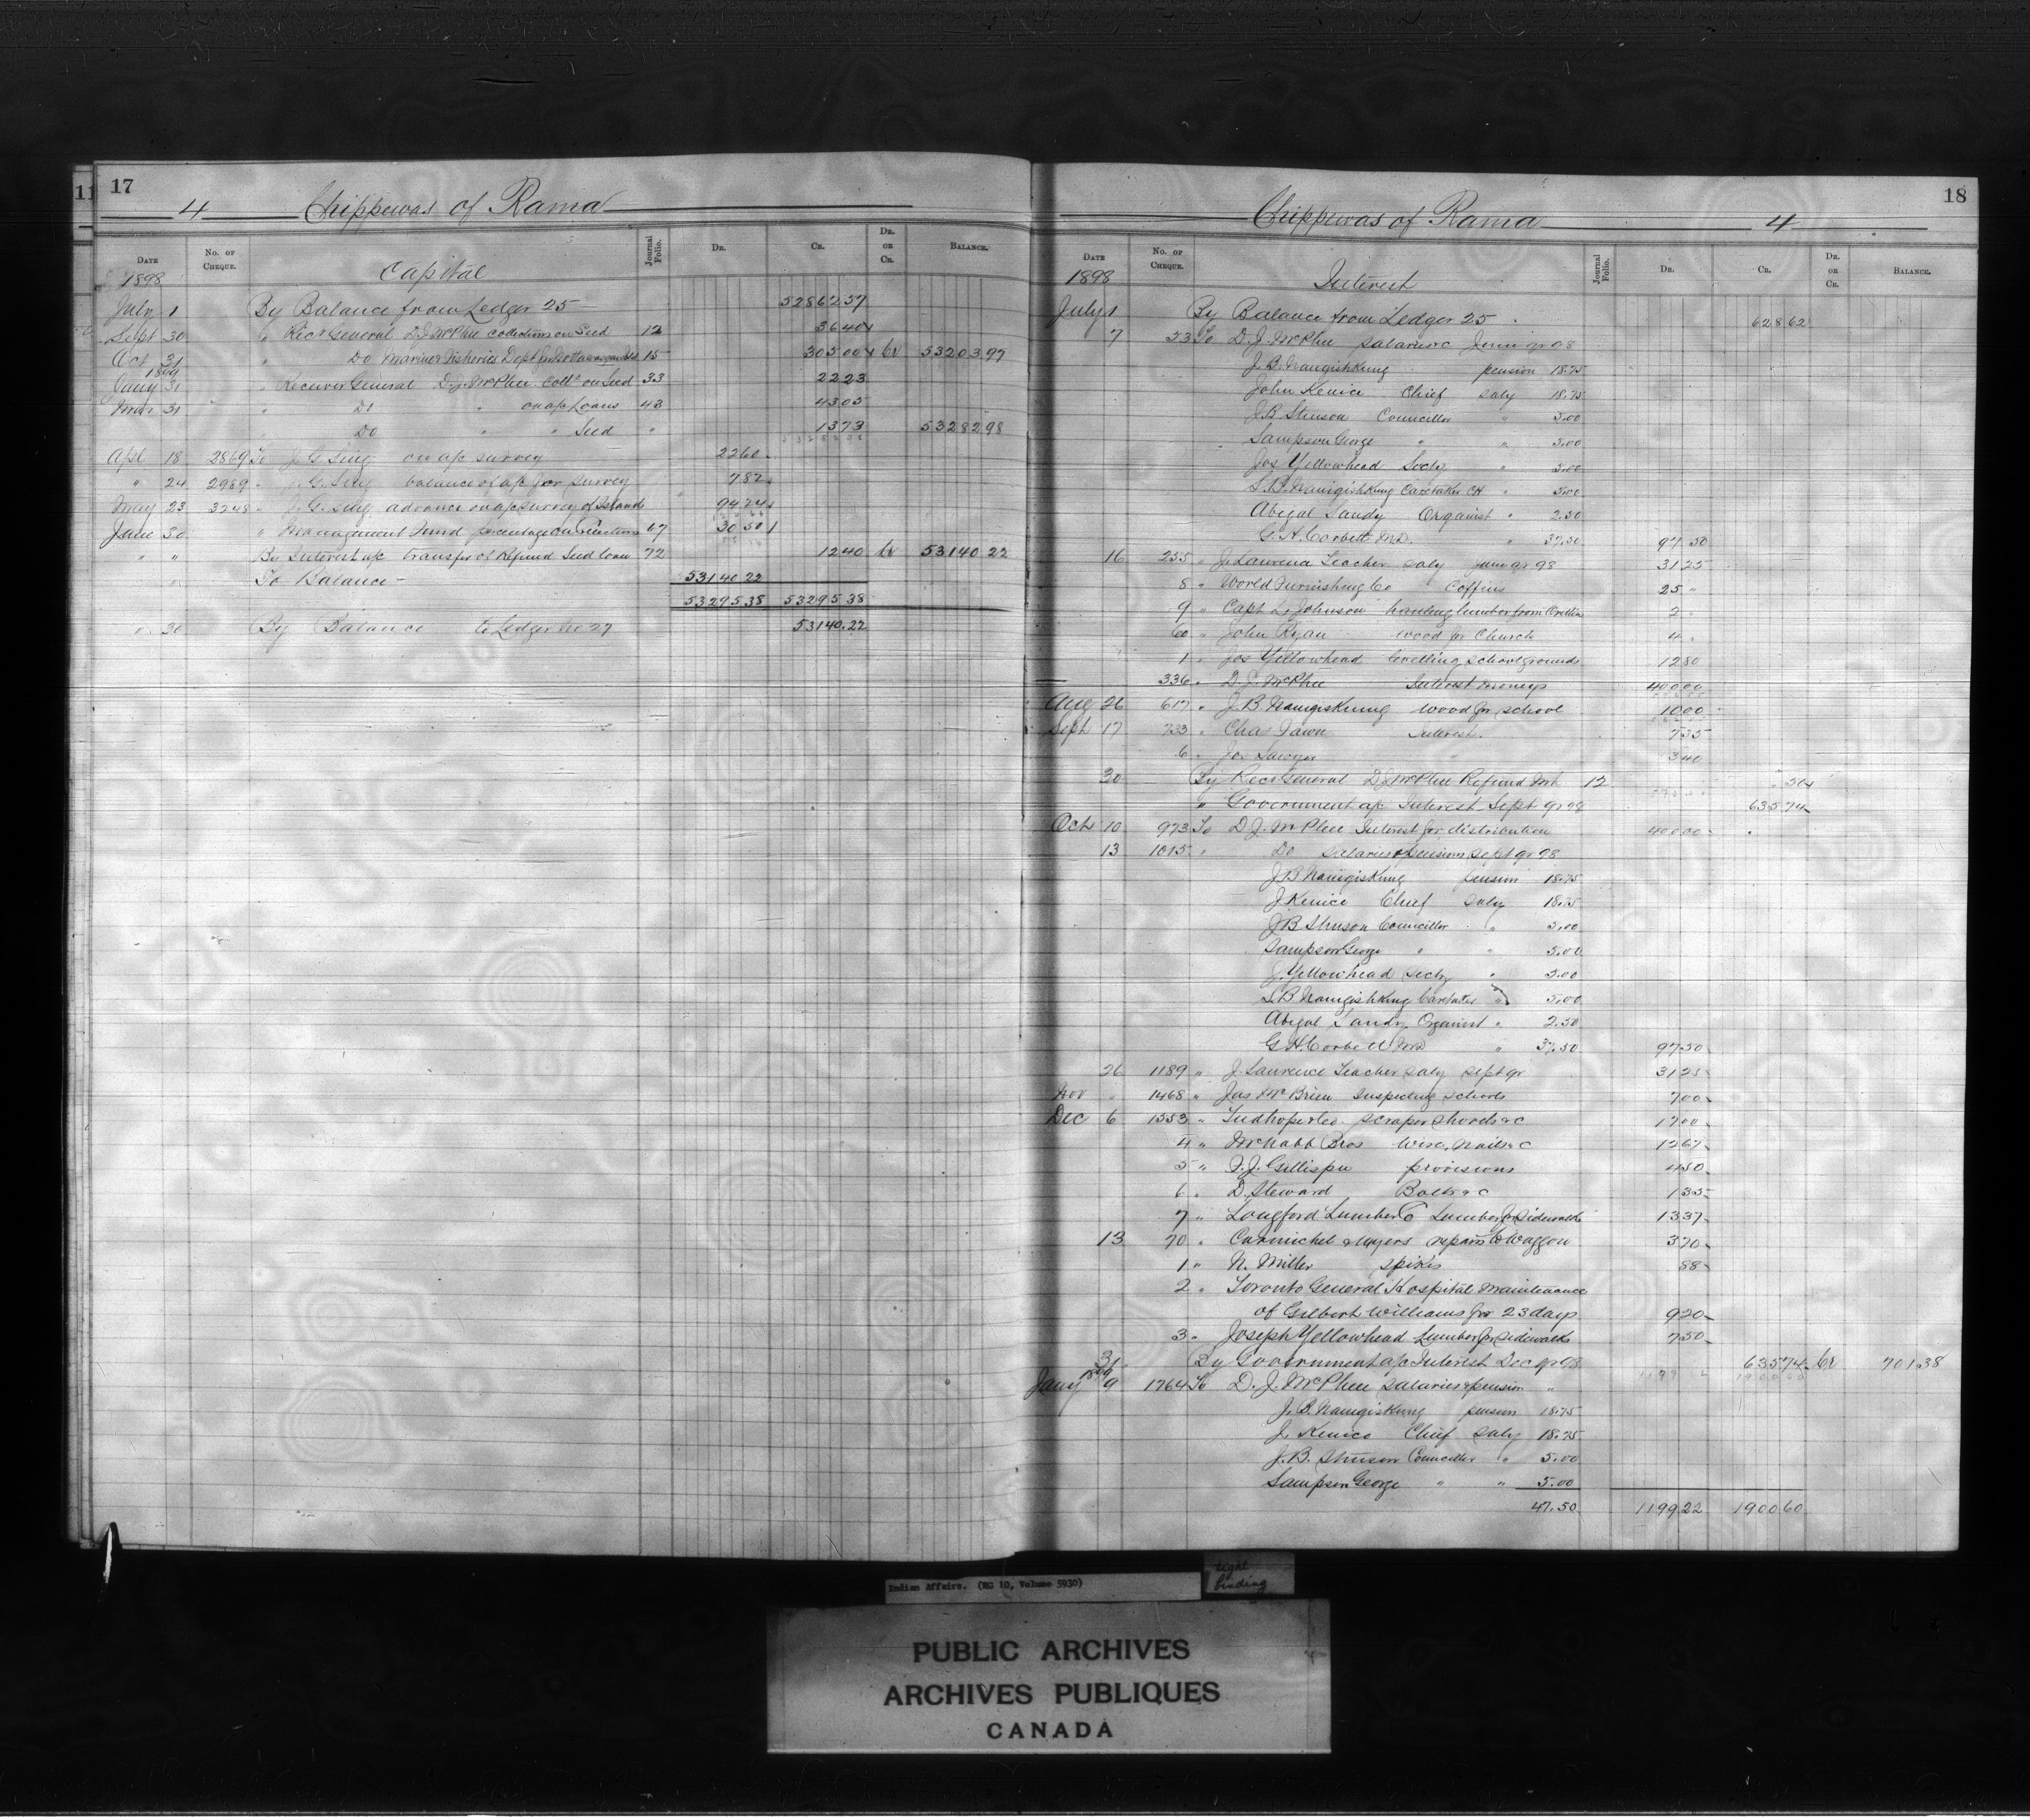 11
17
4 Chippewas of Rama
DATE No. of CHEQUE. Capital Journal Folio. DR. CR. DR. OR CR. BALANCE.
1898
July 1 By Balance from Ledger 25 52862 57
Sept 30 " Recr General D.J. McPhee Collections on Seed 12 36 40
Oct 31 " Do Marine & Fisheries Dept 15 305 00 Cr 53203 97
1899
Jany 31 " Receiver General D.J. McPhee Collns on Seed 33 22 23
Mar 31 " Do " on a/c Loans 43 43 05
" Do " " Seed " 13 73 53282 98
Apl 18 2869 To J. G. Sing on a/c survey 22 60
" 24 2989 " J. G. Sing balance of a/c for survey 7 82
May 23 3248 " J. G. Sing advance on a/c survey of Island 94 24
June 30 " Management Fund percentage on Collections 67 30 50
" " By Interest a/c transfer of Refund Seed loan 72 12 40 Cr 53140 22
" To Balance - 53140 22
53295 38 53295 38
" 30 By Balance to Ledger No 27 53140.22
18
Chippewas of Rama 4
DATE No. of CHEQUE. Interest Journal Folio. DR. CR. DR. OR CR. BALANCE.
1898
July 1 By Balance from Ledger 25 628 62
7 53 To D. J. McPhee salaries &c June qr 98
J. B. Naingishkung pension 18.75
John Kenice Chief saly 18.75
J. B. Stinson Councillor " 5.00
Sampson George " " 5.00
Jos Yellowhead Secty " 5.00
S. B. Naingishkung Caretaker CH " 5.00
Abigal Sandy Organist " 2.50
G. H. Corbett M.D. " 37.50 97 50
16 255 " J. Laurence Teacher saly June qr 98 31 25
8 " World Furnishing Co Coffins 25 "
9 " Capt L. Johnson hauling lumber from Orillia 2 "
60 " John Ryan wood for Church 4 "
1 " Jos Yellowhead levelling school grounds 12 80
336 " D. J. McPhee Interest moneys 400 00
Aug 26 617 " J. B. Naingiskung wood for school 10 00
Sept 17 733 " Chas Fawn Interest 7 35
6 " Jos Sawyer " 3 40
30 By Recr General D.J. McPhee Refund Int 12 " 50
" Government a/c Interest Sept qr 98 635 74
Oct 10 973 To D. J. McPhee Interest for distribution 400 00
13 1015 " Do salaries & pensions Sept qr 98
J. B. Naingiskung pension 18.75
J. Kenice Chief saly 18.75
J. B. Stinson Councillor " 5.00
Sampson George " " 5.00
J. Yellowhead Secty " 5.00
S. B. Naingishkung Caretaker " 5.00
Abigal Sandy Organist " 2.50
G. H. Corbett M.D " 37.50 97 50
26 1189 " J. Laurence Teacher saly Sept qr 31 25
Nov " 1468 " Jas McBrien Inspecting schools 7 00
Dec 6 1553 " Tudhope & Co. scraper shovels &c 17 00
4 " McNabb Bros Wire, nails &c 12 67
5 " F. J. Gillispie provisions 4 50
6 " D. Steward Bolts &c 1 35
7 " Longford Lumber Co Lumber for sidewalk 13 37
13 70 " Carmichel & Myers repairs to Waggon 3 70
1 " N. Miller spikes 88
2 " Toronto General Hospital Maintenance
of Gilbert Williams for 23 days 9 20
3 " Joseph Yellowhead Lumber for sidewalk 7 50
31 By Government a/c Interest Dec qr 98 635 74 Cr 701.38
1899
Jany 9 1764 To D. J. McPhee salaries & pension "
J. B. Naingiskung pension 18.75
J. Kenice Chief saly 18.75
J. B. Stinson Councillor " 5.00
Sampson George " " 5.00
47.50 1199 22 1900 60
Indian Affairs. (RG 10, Volume 5930)
tight
binding
PUBLIC ARCHIVES
ARCHIVES PUBLIQUES
CANADA